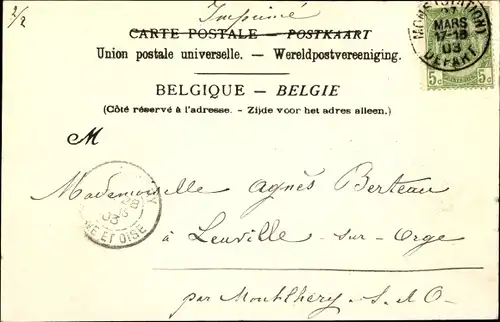 2/2
Imprimé
CARTE POSTALE — POSTKAART
Union postale universelle. — Wereldpostvereeniging.
BELGIQUE – BELGIE
(Côté réservé à l'adresse. - Zijde voor het adres alleen.)
MONS (STATION)
27
MARS
17-18
03
DEPART
5c 5c
M
Mademoiselle Agnès Berteau
03
ET OISE
à Leuville-sur-Orge
par Montlhéry. S. et O.